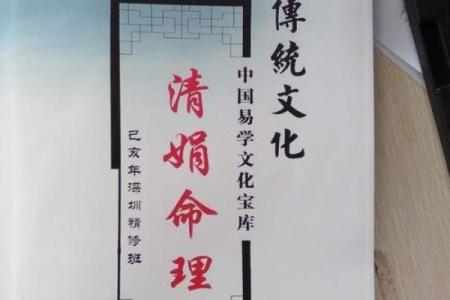 傳統文化
中国易学文化宝库
清娟命理
己亥年深圳精修班